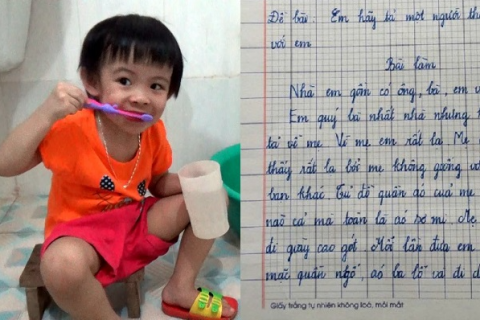 Đề bài: Em hãy tả một người th
với em
Bài làm
Nhà em gồm có ông, bà, em v
Em quý bà nhất nhà nhưng
tả về mẹ. Vì mẹ em rất lạ. Mẹ
thấy rất lạ bởi mẹ không giống vớ
bạn khác. Tủ đồ quần áo của mẹ
nào cả mà toàn là áo sơ mi. Mẹ
đi giày cao gót. Mỗi lần đưa em
mặc quần ngố, áo ba lỗ và đi d
Giấy trắng tự nhiên không loá, mỏi mắt